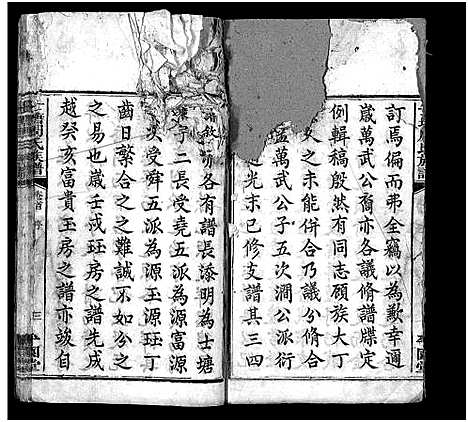 訂焉偏而弗全竊以為歉幸邇
歲萬武公裔亦各議脩譜牒定
例輯稿殷然有同志顧族大丁
久之未能併合乃議分脩合
孟萬武公子五次澗公派衍
光末已修支譜其三四
諸敘
均各有譜長添明為士塘
二長受堯五派為源富源
次受舜五派為源玉源珏丁
齒日繁合之之難誠不如分之
之易也歲壬戌珏房之譜先成
越癸亥富貴玉房之譜亦竣自
周氏族譜
卷首
三
本圓堂